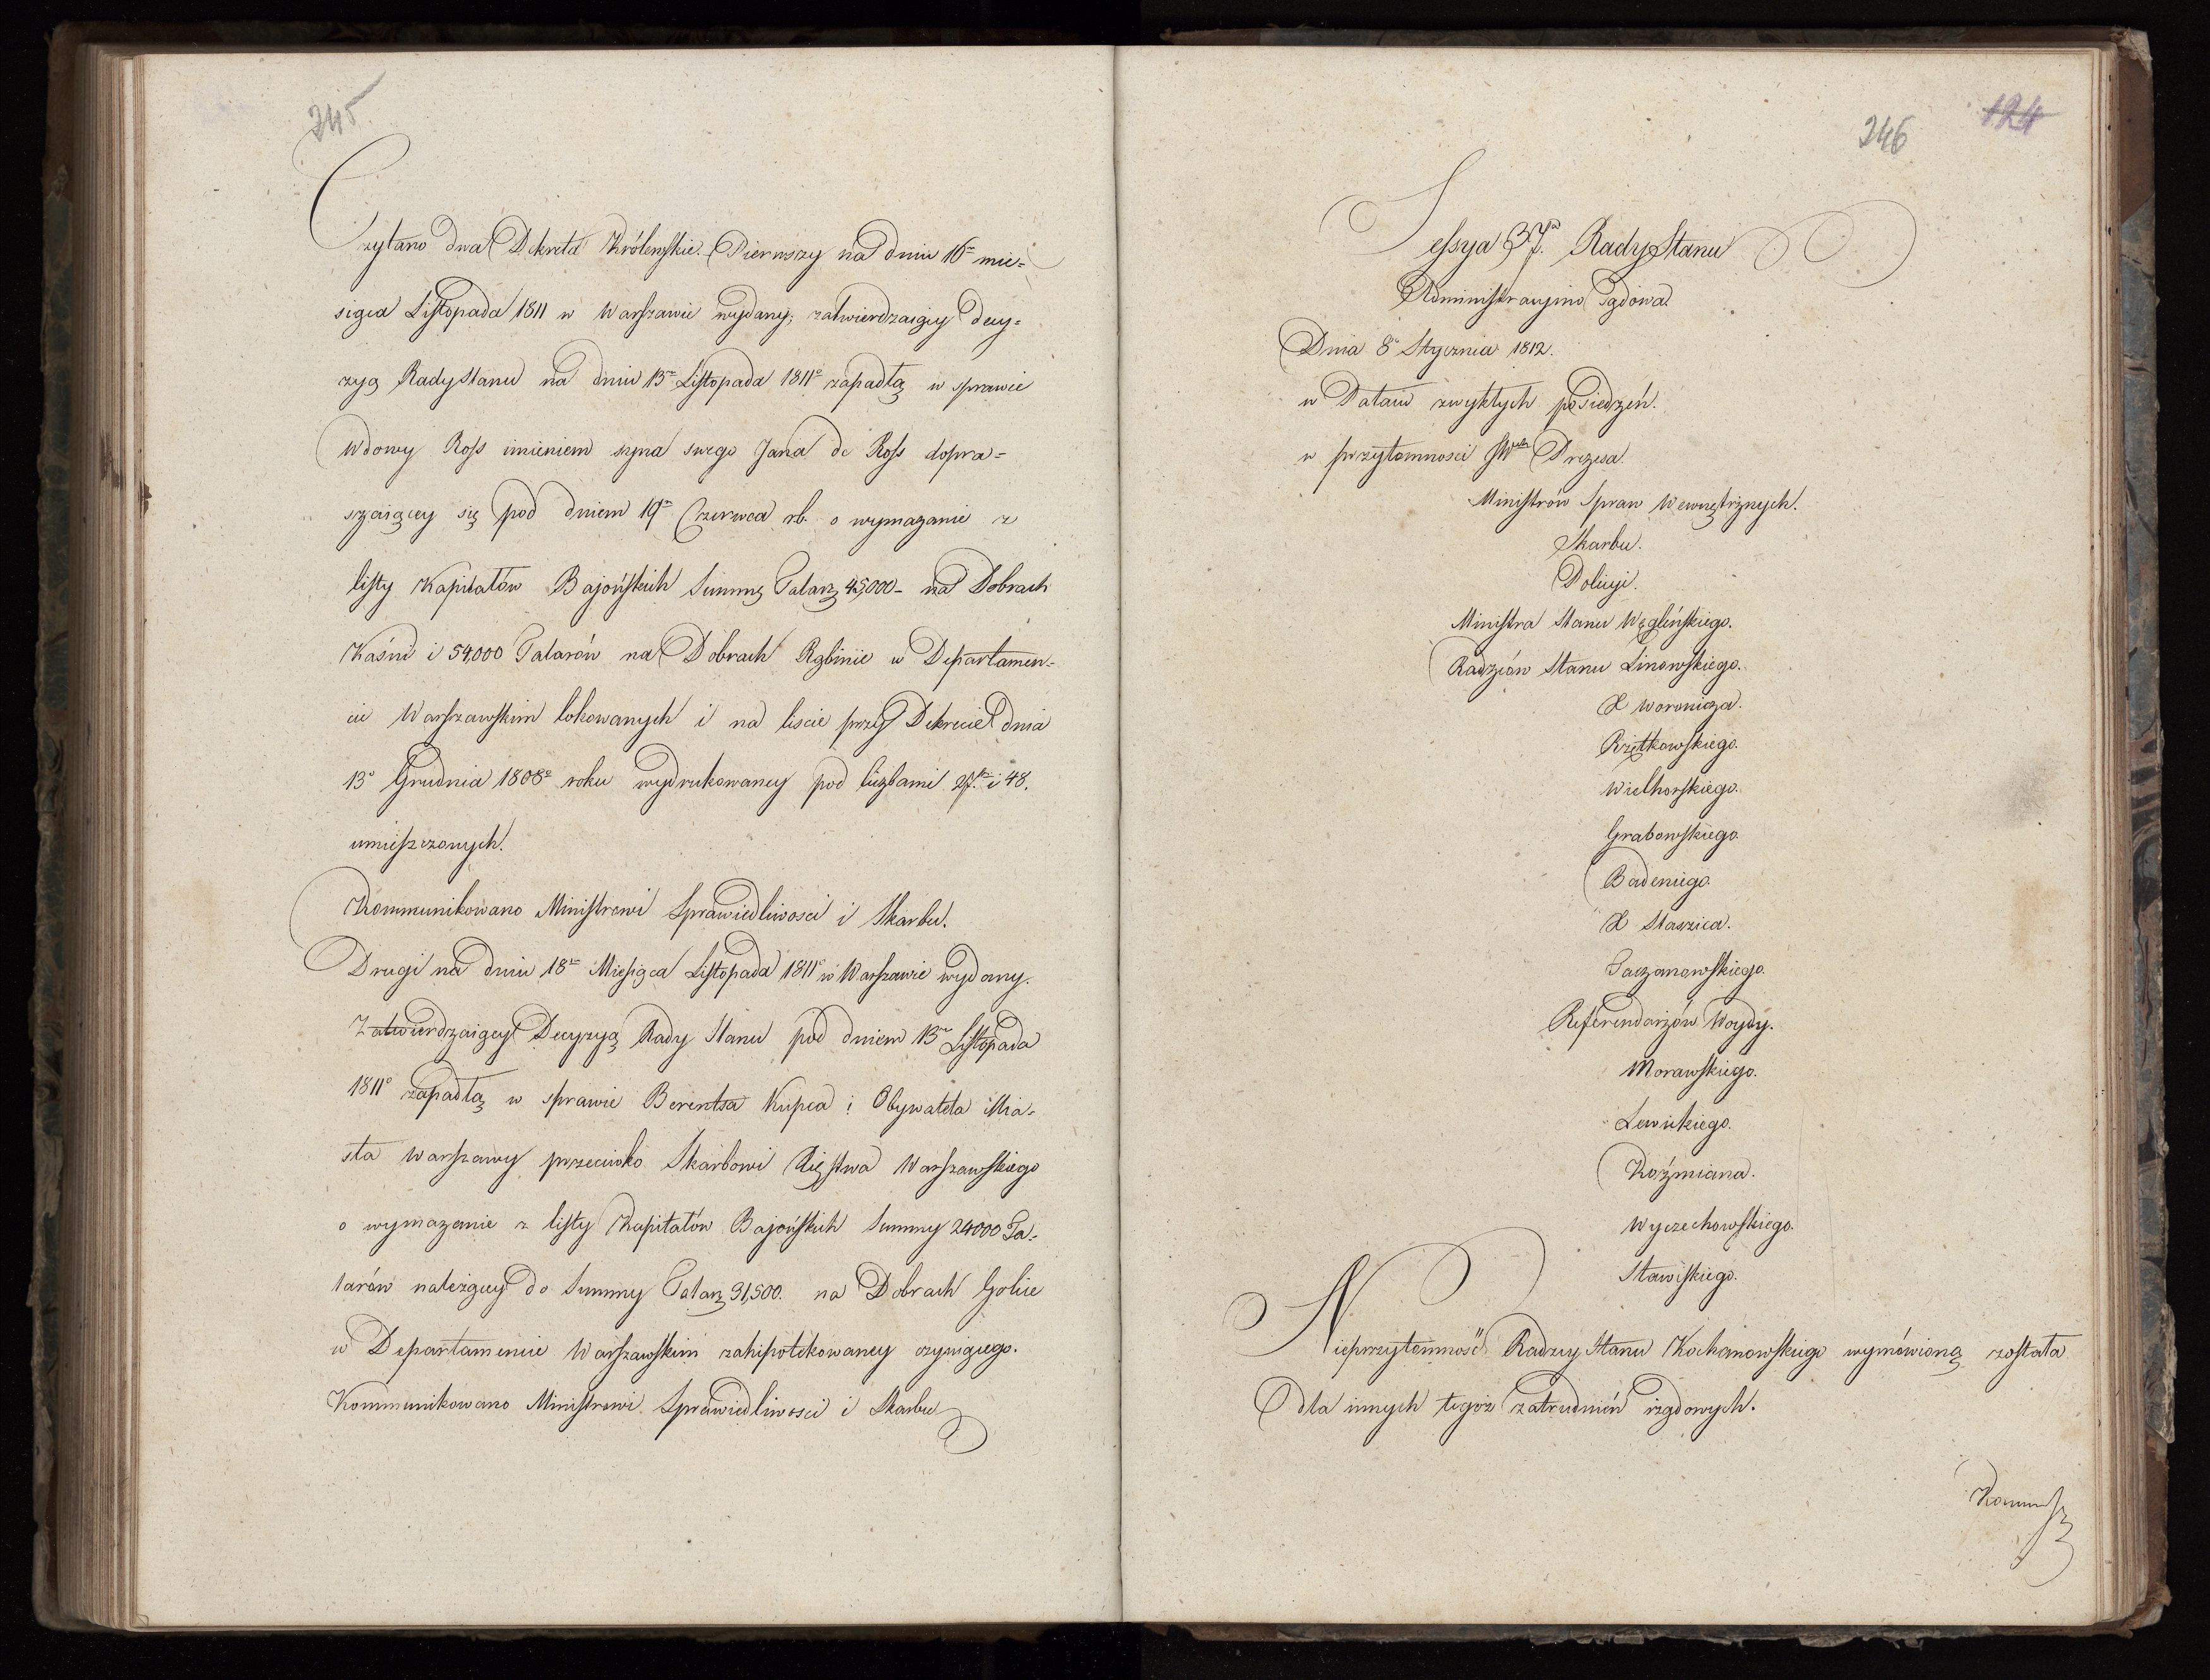 245.
Czytano dwa Dekreta Królewskie. Pierwszy na dniu 16m mie=
siąca Listopada 1811 w Warszawie wydany, zatwierdzaiący decy=
zyą Rady Stanu na dniu 13m Listopada 1811o zapadłą w sprawie
Wdowy Ross imieniem syna swego Jana de Ross dopra=
szaiącey się pod dniem 19m Czerwca rb. o wymazanie z
listy Kapitałów Bajońskich Summy Talarz 45,000 - na Dobrach
Kaśni i 54,000 Talarów na Dobrach Rąbinie w Departamen=
cie Warszawskim lokowanych i na liscie przy Dekrecie dnia
13o Grudnia 1808o roku wydrukowaney pod liczbami 27. i 48.
umieszczonych.
Kommunikowano Ministrowi Sprawiedliwosci i Skarbu.
Drugi na dniu 18m Miesiąca Listopada 1811o w Warszawie wydany.
Zatwierdzaiący Decyzyą Rady Stanu pod dniem 13m Listopada
1811o zapadłą w sprawie Berentsa Kupca i Obywatela Mia=
sta Warszawy przeciwko Skarbowi Xięstwa Warszawskiego
o wymazanie z listy Kapitałów Bajońskich Summy 24000 Ta=
larów należącey do Summy Talarz 31,500. na Dobrach Golice
w Departamencie Warszawskim zahipotekowaney czyniącego.
Kommunikowano Ministrowi Sprawiedliwosci i Skarbu
246
124
Sessya 37a. Rady Stanu
Administracyino Sądowa
Dnia 8o Stycznia 1812.
w Datam zwykłych posiedzeń.
w przytomnosci JW Prezesa.
Ministrów Spraw Wewnętrznych.
Skarbu.
Policyi.
Ministra Stanu Węgleńskiego.
Radzców Stanu Linowskiego.
X Woronicza.
Rzętkowskiego.
Wielhorskiego.
Grabowskiego.
Badeniego.
X Staszica.
Taczanowskiego.
Referendarzów Woydy.
Morawskiego.
Lewickiego.
Koźmiana.
Wyczechowskiego.
Stawiskiego.
Nieprzytomność Radzcy Stanu Kochanowskiego wymówioną została
dla innych tegoż zatrudnień rządowych.